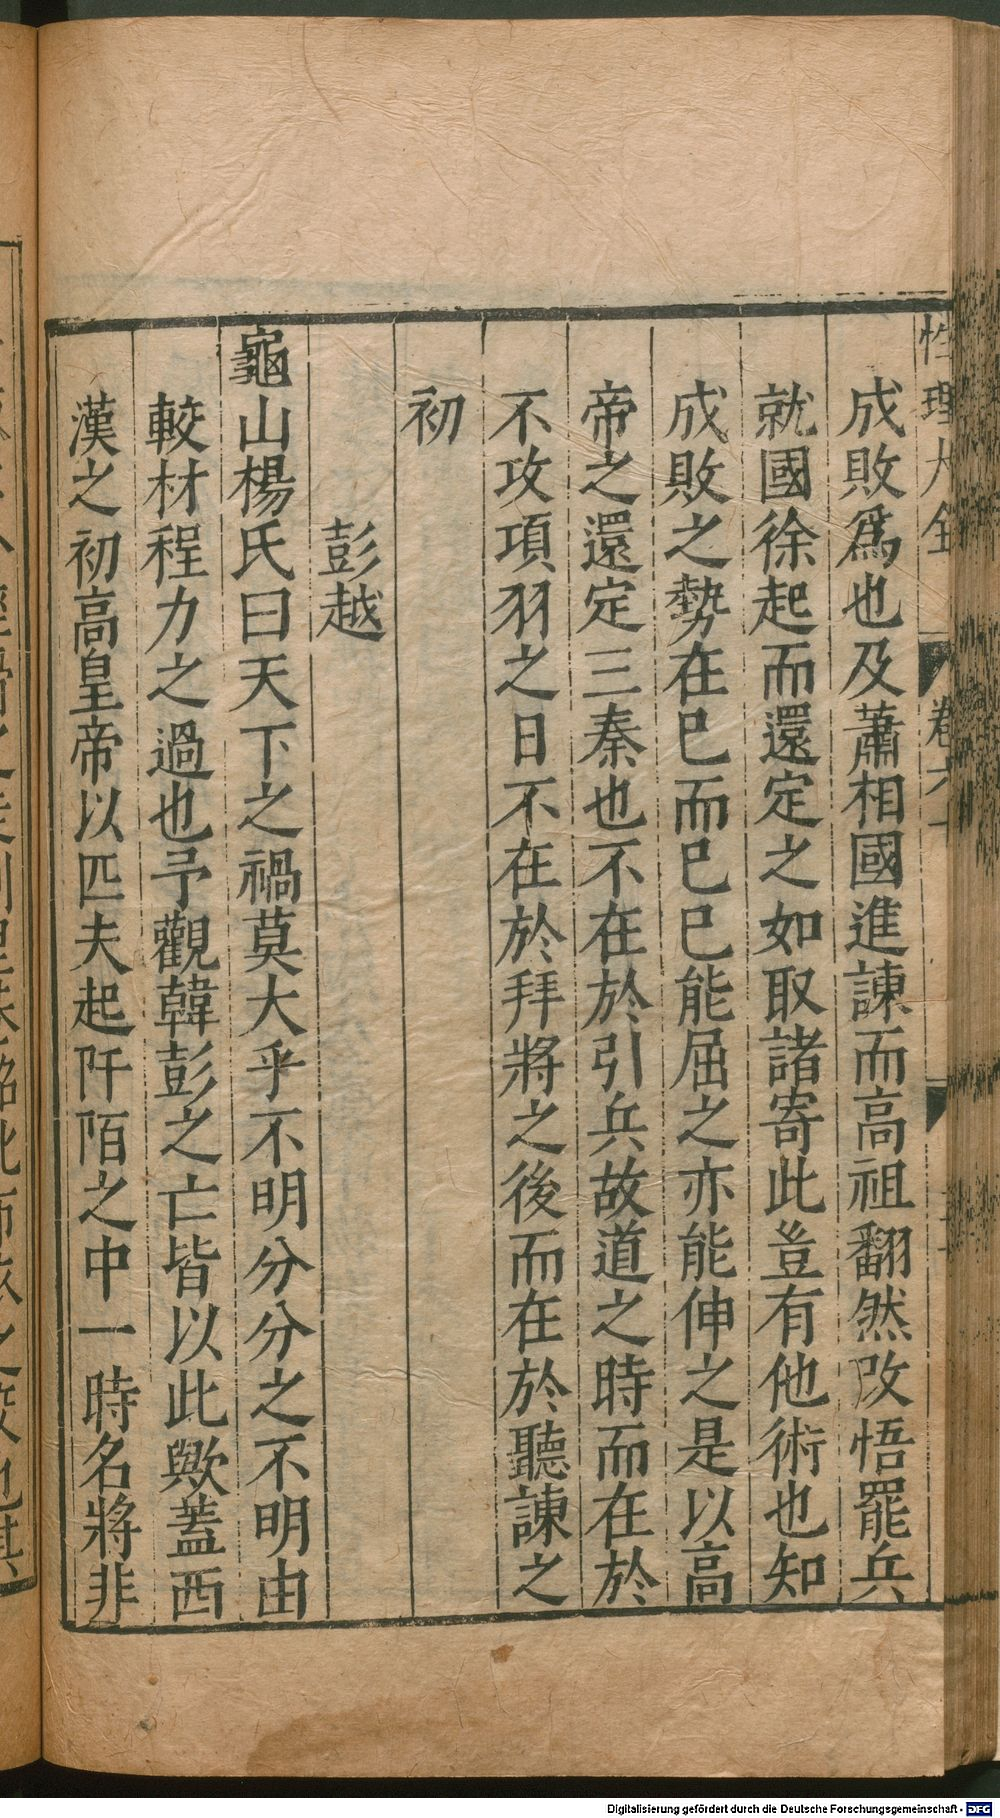 性理大全
卷六
成敗爲也及蕭相國進諫而高祖翻然改悟罷兵
就國徐起而還定之如取諸寄此豈有他術也知
成敗之勢在巳而巳巳能屈之亦能伸之是以高
帝之還定三秦也不在於引兵故道之時而在於
不攻項羽之日不在於拜將之後而在於聽諫之
初
彭越
龜山楊氏曰天下之禍莫大乎不明分分之不明由
較材程力之過也予觀韓彭之亡皆以此歟蓋西
漢之初高皇帝以匹夫起阡陌之中一時名將非
Digitalisierung gefördert durch die Deutsche Forschungsgemeinschaft - DFG